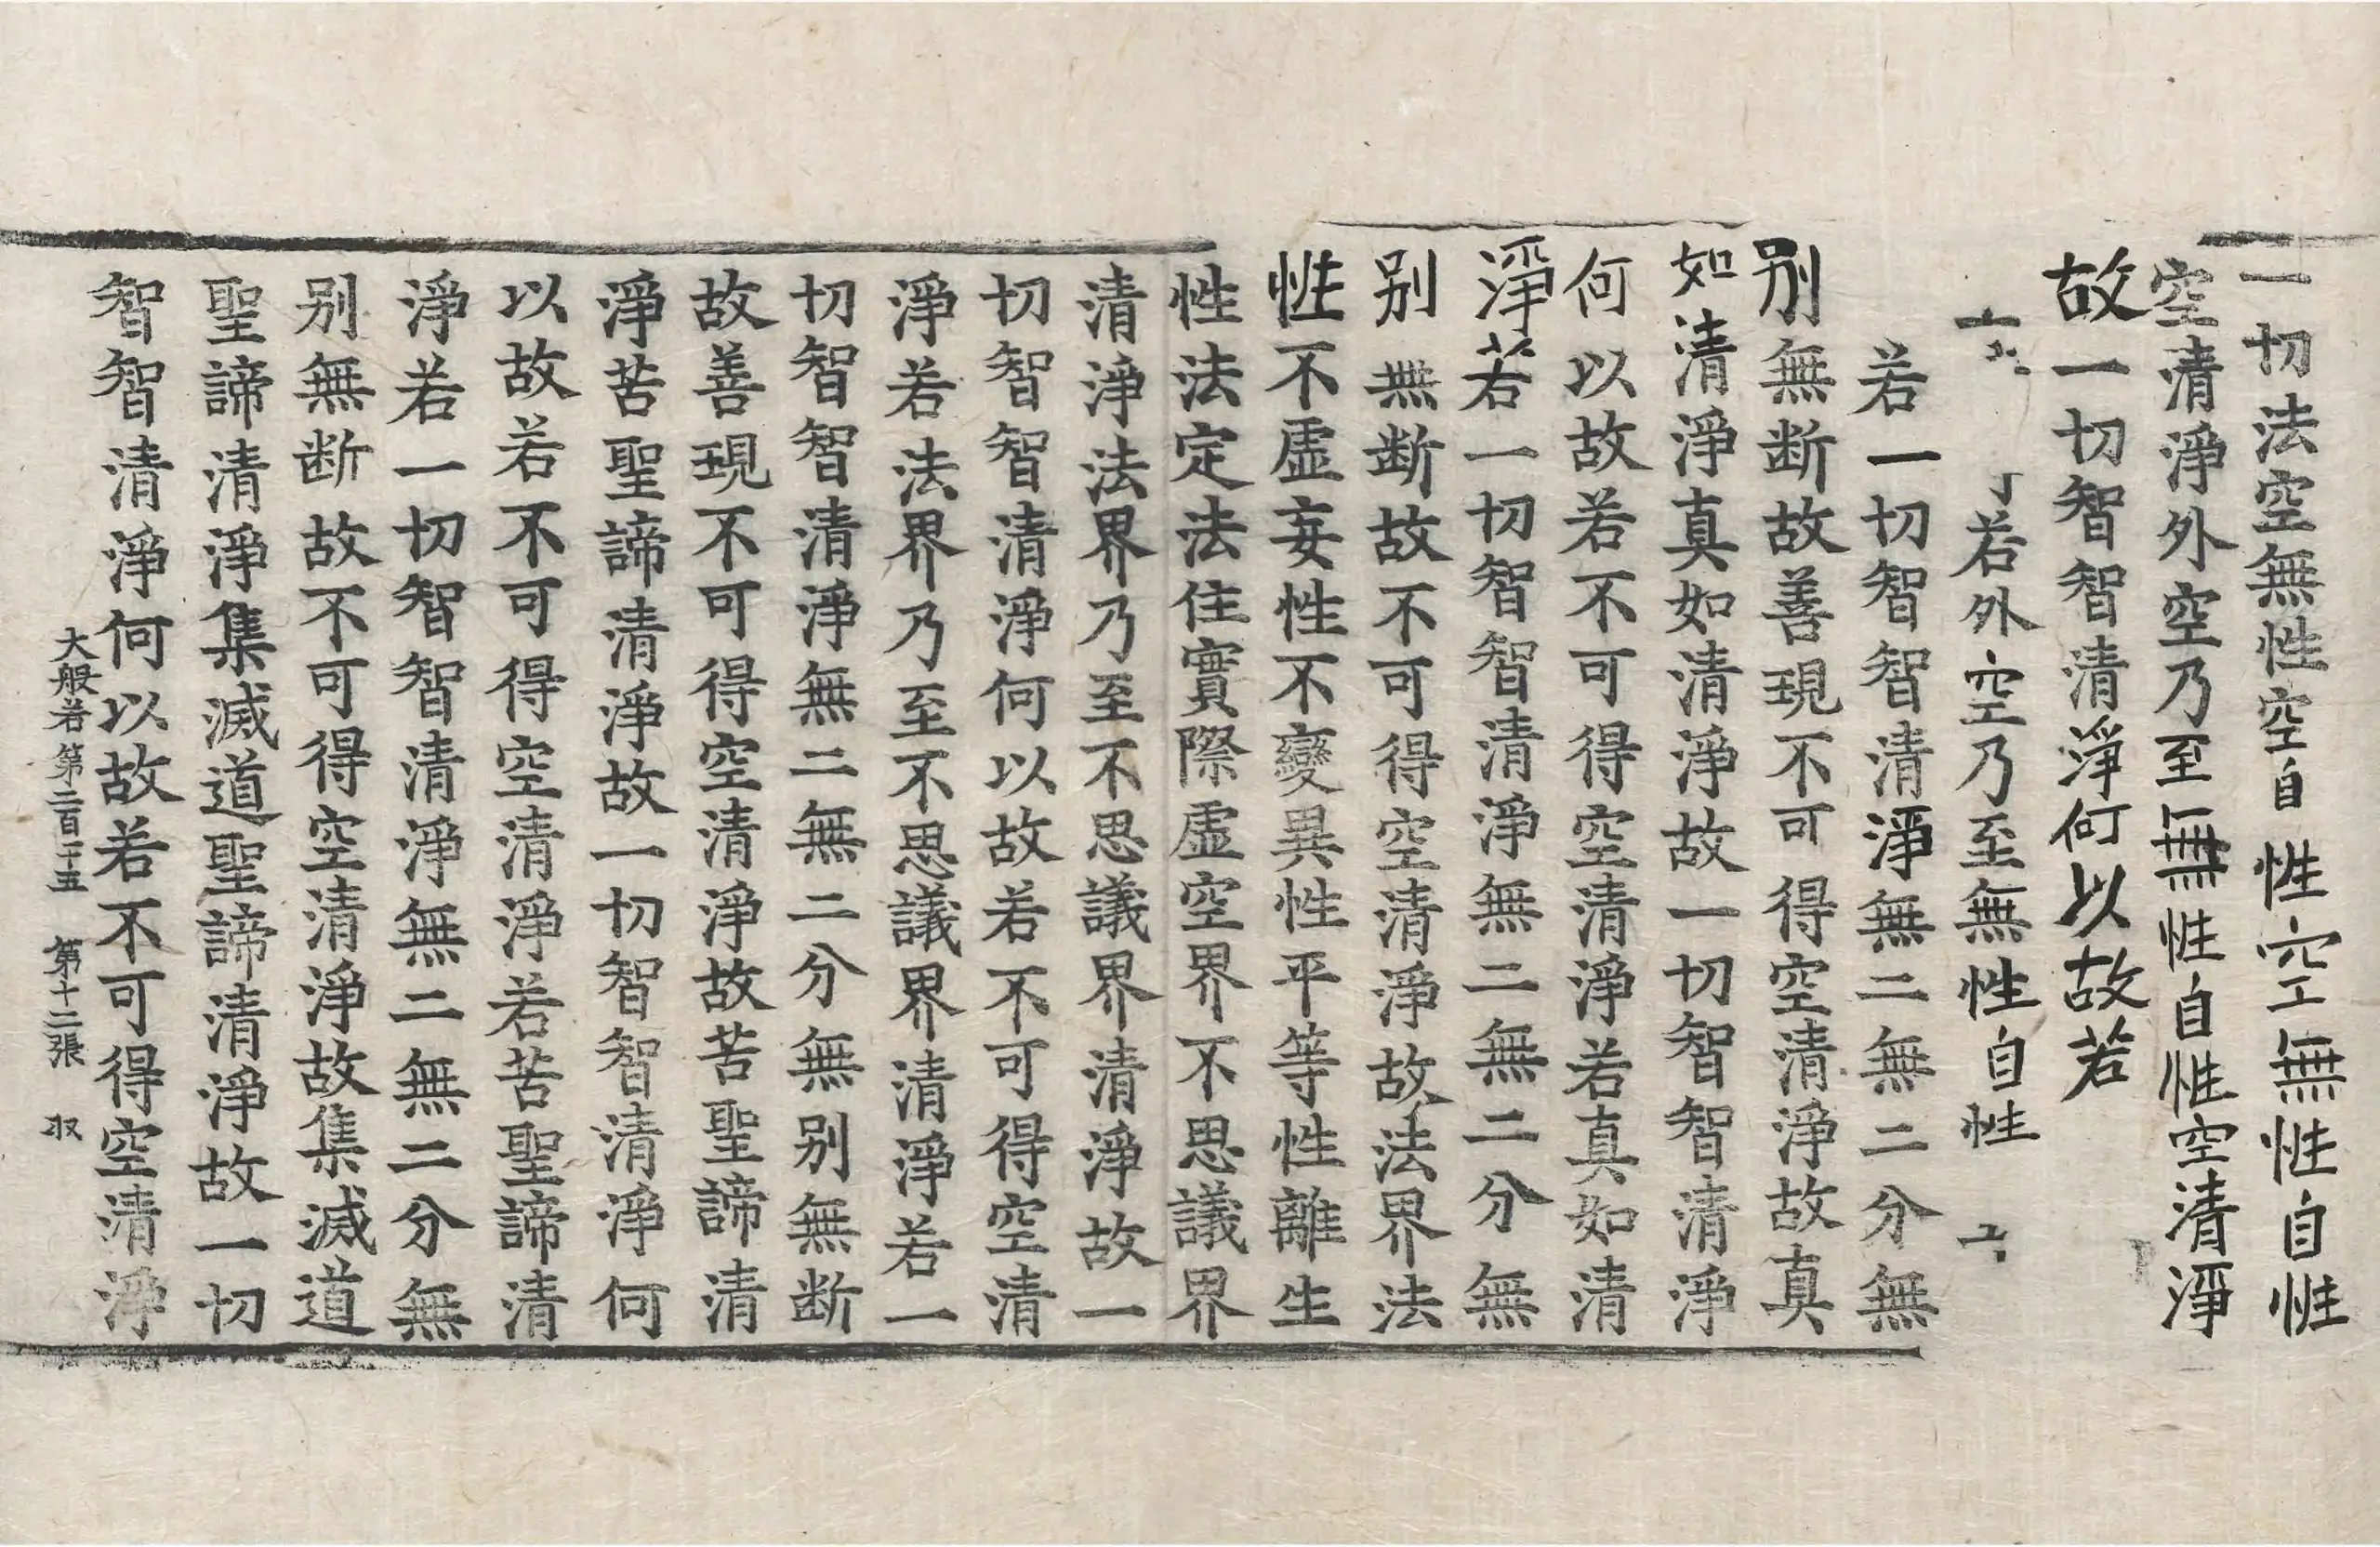 一切法空無性空自性空無性自性
空清淨外空乃至無性自性空清淨
故一切智智清淨何以故若
若外空乃至無性自性
若一切智智清淨無二無二分無
別無断故善現不可得空清淨故真
如清淨真如清淨故一切智智清淨
何以故若不可得空清淨若真如清
淨若一切智智清淨無二無二分無
別無断故不可得空清淨故法界法
性不虛妄性不變異性平等性離生
性法定法住實際虛空界不思議界
清淨法界乃至不思議界清淨故一
切智智清淨何以故若不可得空清
淨若法界乃至不思議界清淨若一
切智智清淨無二無二分無別無断
故善現不可得空清淨故苦聖諦清
淨苦聖諦清淨故一切智智清淨何
以故若不可得空清淨若苦聖諦清
淨若一切智智清淨無二無二分無
別無断故不可得空清淨故集滅道
聖諦清淨集滅道聖諦清淨故一切
智智清淨何以故若不可得空清淨
大般若第二百二十五 第十二張